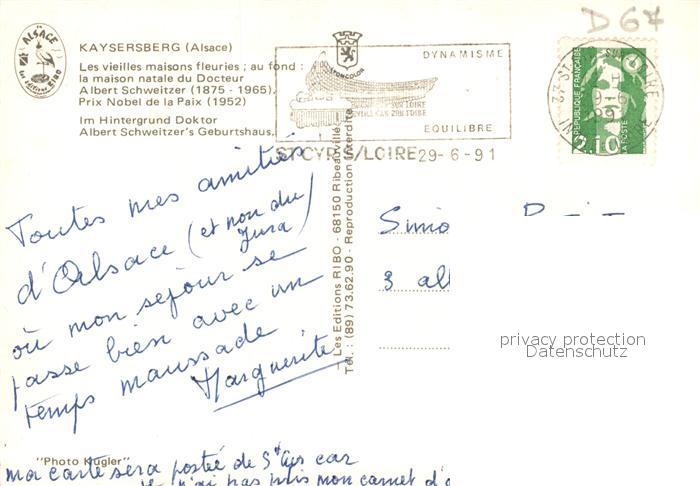 D 67
ALSACE
KAYSERSBERG (Alsace)
Les vieilles maisons fleuries ; au fond :
la maison natale du Docteur
Albert Schweitzer (1875 - 1965),
Prix Nobel de la Paix (1952)
Im Hintergrund Doktor
Albert Schweitzer's Geburtshaus.
DYNAMISME
EQUILIBRE
ST CYR S/LOIRE 29-6-91
REPUBLIQUE FRANÇAISE
2,10
LA POSTE
Toutes mes amitiés
d'Alsace (et non du
Jura)
où mon séjour se
passe bien avec un
temps maussade
Marguerite
Les Editions RIBO - 68150 Ribeauvillé
Tél. : (89) 73.62.90 - Reproduction interdite
Simo
D
3 all
privacy protection
Datenschutz
"Photo Kugler"
ma carte sera postée de St Cyr car
n'ai pas pris mon carnet d'a